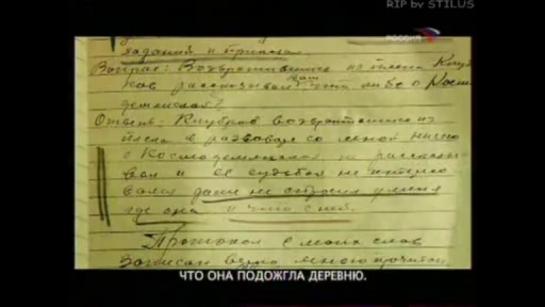 RIP by STILUS
РОССИЯ
заданий и приказа
Вопрос: Возвратившись из плена Клуб
ков рассказывал вам что либо о Косм
демьянской?
Ответ: Клубков возвратившись из
плена в разговоре со мной ничего
о Космодемьянской не рассказы
вал и её судьбой не интересо
вался даже не спросил у меня
где она и что с ней.
Протокол с моих слов
записан верно мною прочитан
ЧТО ОНА ПОДОЖГЛА ДЕРЕВНЮ.